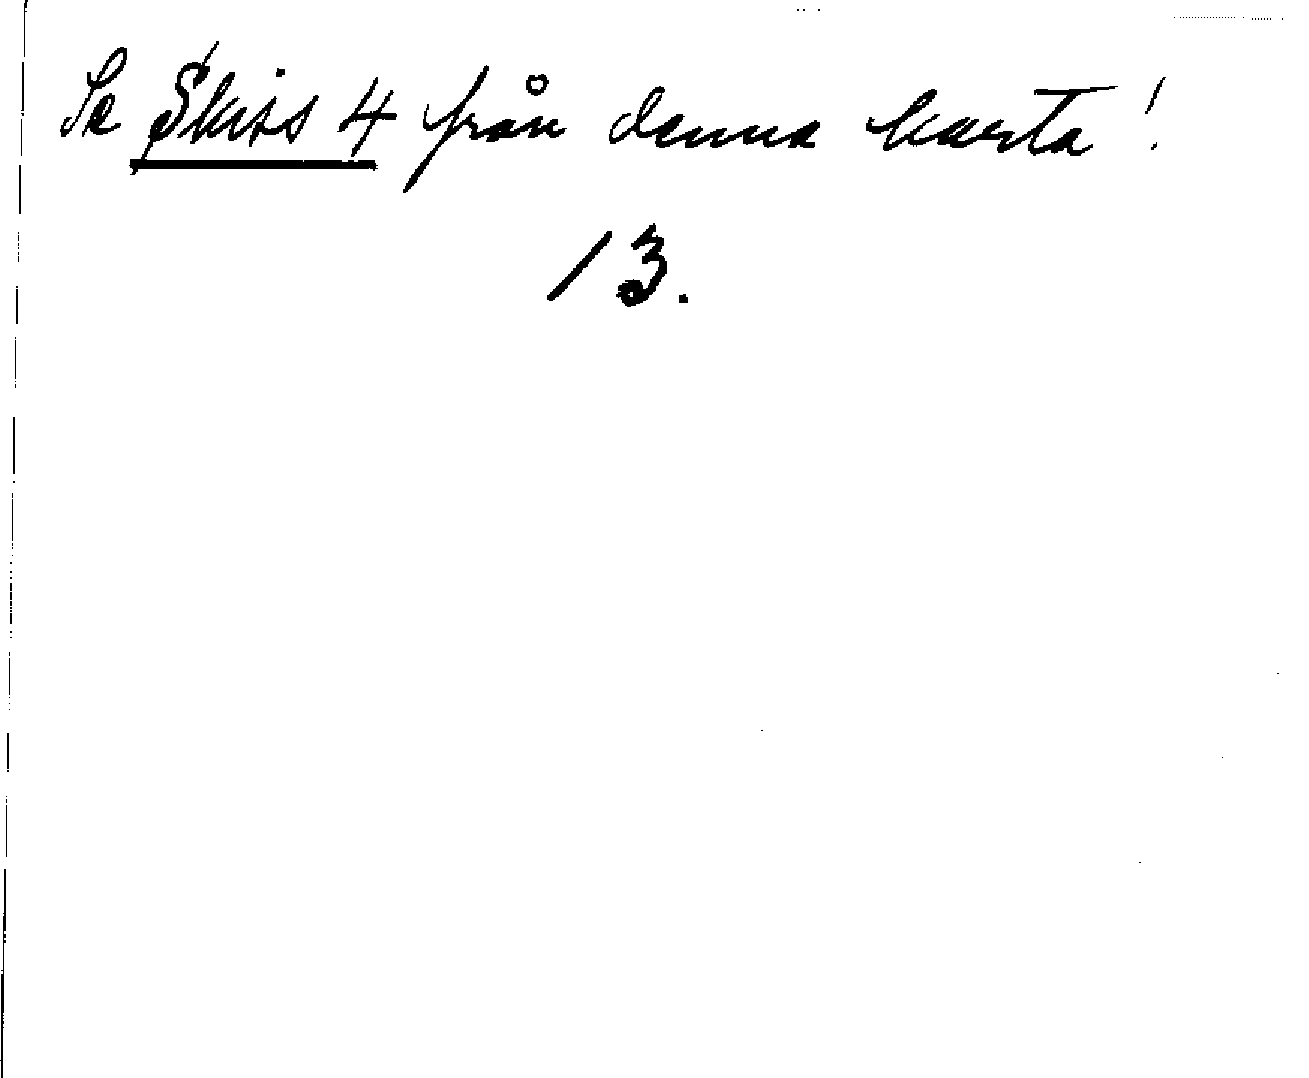 Se Skiss 4 från denna karta!
13.